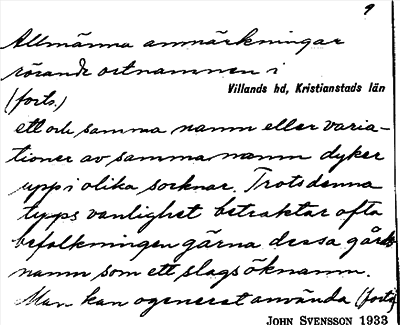 9
Allmänna anmärkningar
rörande ortnamnen i
Villands hd, Kristianstads län
(forts.)
ett och samma namn eller varia-
tioner av samma namn dyker
upp i olika socknar. Trots denna
typs vanlighet betraktar ofta
befolkningen gärna dessa gårds
namn som ett slags öknamn.
Man kan ogenerat använda (forts)
JOHN SVENSSON 1933